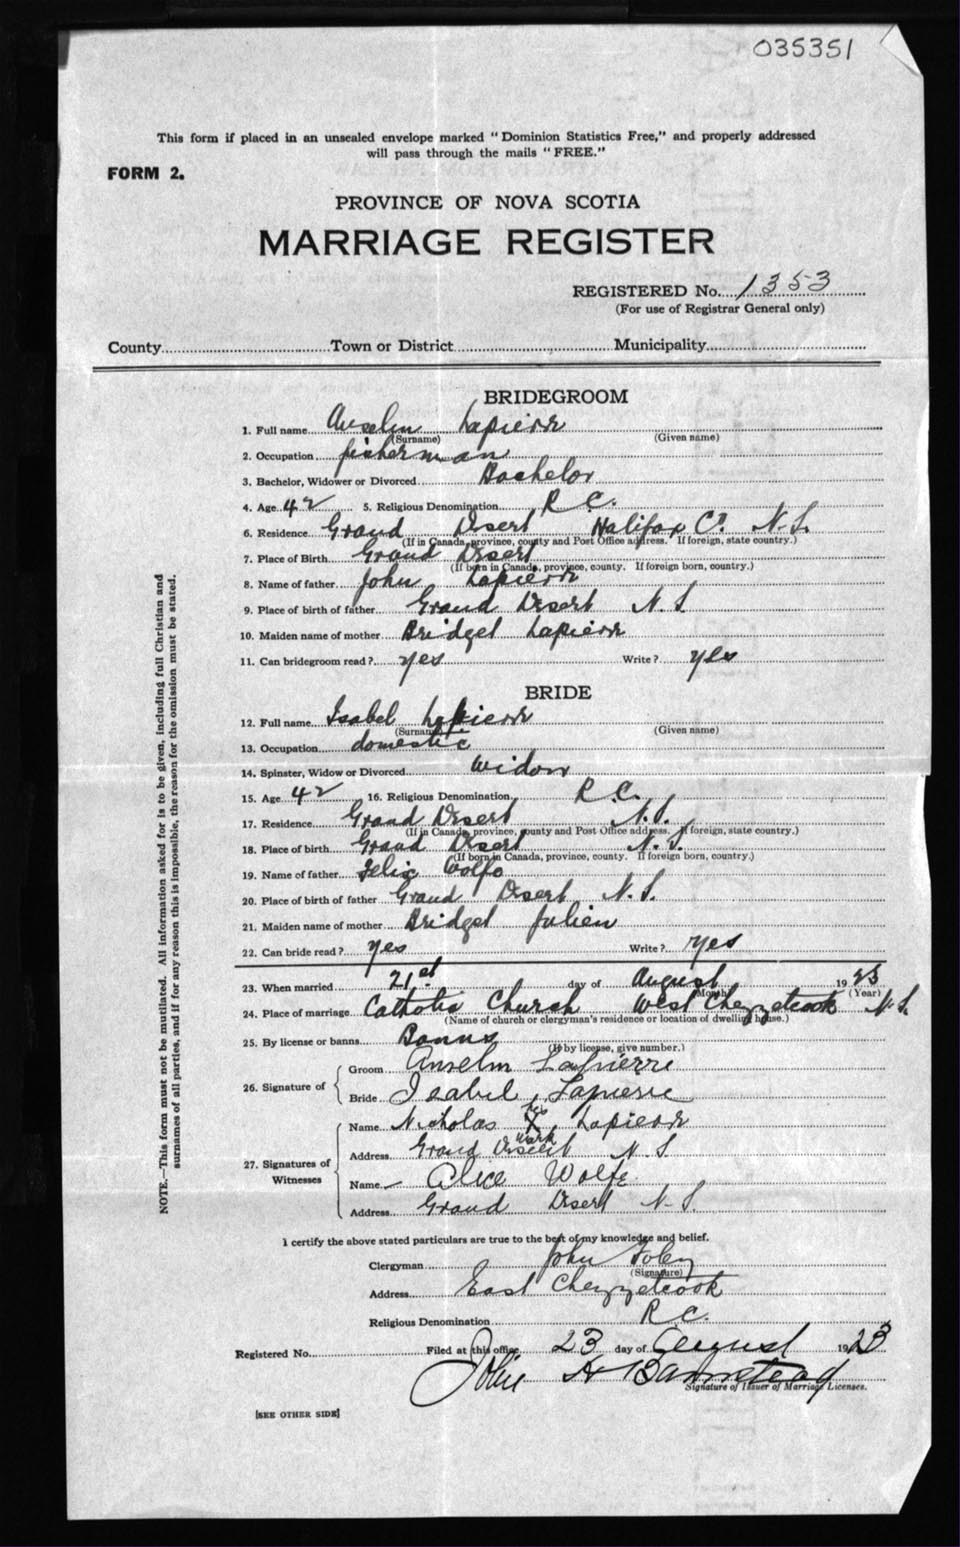 035351
This form if placed in an unsealed envelope marked "Dominion Statistics Free," and properly addressed
will pass through the mails "FREE."
FORM 2.
PROVINCE OF NOVA SCOTIA
MARRIAGE REGISTER
REGISTERED No. 1353
(For use of Registrar General only)
County Town or District Municipality
BRIDEGROOM
1. Full name Anselm Lapierr
(Surname) (Given name)
2. Occupation fisherman
3. Bachelor, Widower or Divorced Bachelor
4. Age 42 5. Religious Denomination R C.
6. Residence Grand Desert Halifax Co. N.S.
(If in Canada, province, county and Post Office address. If foreign, state country.)
7. Place of Birth Grand Desert
(If born in Canada, province, county. If foreign born, country.)
8. Name of father John Lapierr
9. Place of birth of father Grand Desert N.S
10. Maiden name of mother Bridget Lapierr
11. Can bridegroom read? yes Write? yes
BRIDE
12. Full name Isabel Lapierr
(Surname) (Given name)
13. Occupation domestic
14. Spinster, Widow or Divorced Widow
15. Age 42 16. Religious Denomination R.C.
17. Residence Grand Desert N.S.
(If in Canada, province, county and Post Office address. If foreign, state country.)
18. Place of birth Grand Desert N.S.
(If born in Canada, province, county. If foreign born, country.)
19. Name of father Felix Wolfe
20. Place of birth of father Grand Desert N.S.
21. Maiden name of mother Bridget Julien
22. Can bride read? yes Write? yes
23. When married 21st day of August 1923
(Month) (Year)
24. Place of marriage Catholic Church West Chezzetcook N.S.
(Name of church or clergyman's residence or location of dwelling house.)
25. By license or banns Banns
(If by license, give number.)
26. Signature of
Groom Anselm Lapierre
Bride Isabel Lapierre
27. Signatures of Witnesses
Name Nicholas his X mark Lapierr
Address Grand Desert N.S
Name Alice Wolfe
Address Grand Desert N.S.
I certify the above stated particulars are true to the best of my knowledge and belief.
Clergyman John Foley
(Signature)
Address East Chezzetcook
Religious Denomination R.C.
Registered No. Filed at this office 23 day of August 1923
John A Barnstead
Signature of Issuer of Marriage Licenses.
[SEE OTHER SIDE]
NOTE.—This form must not be mutilated. All information asked for is to be given, including full Christian and
surnames of all parties, and if for any reason this is impossible, the reason for the omission must be stated.